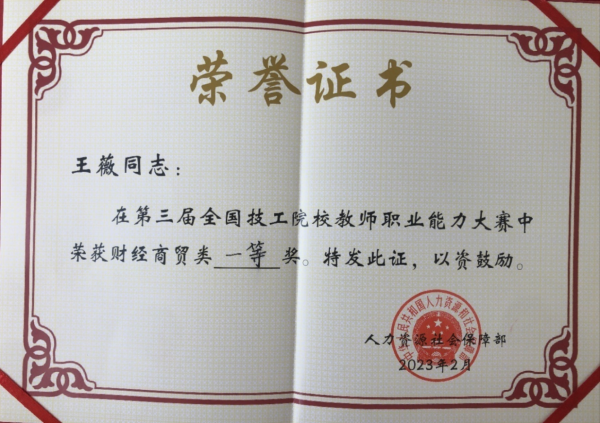 荣誉证书
王薇同志：
在第三届全国技工院校教师职业能力大赛中
荣获财经商贸类一等奖。特发此证，以资鼓励。
人力资源社会保障部
2023年2月
中华人民共和国人力资源和社会保障部